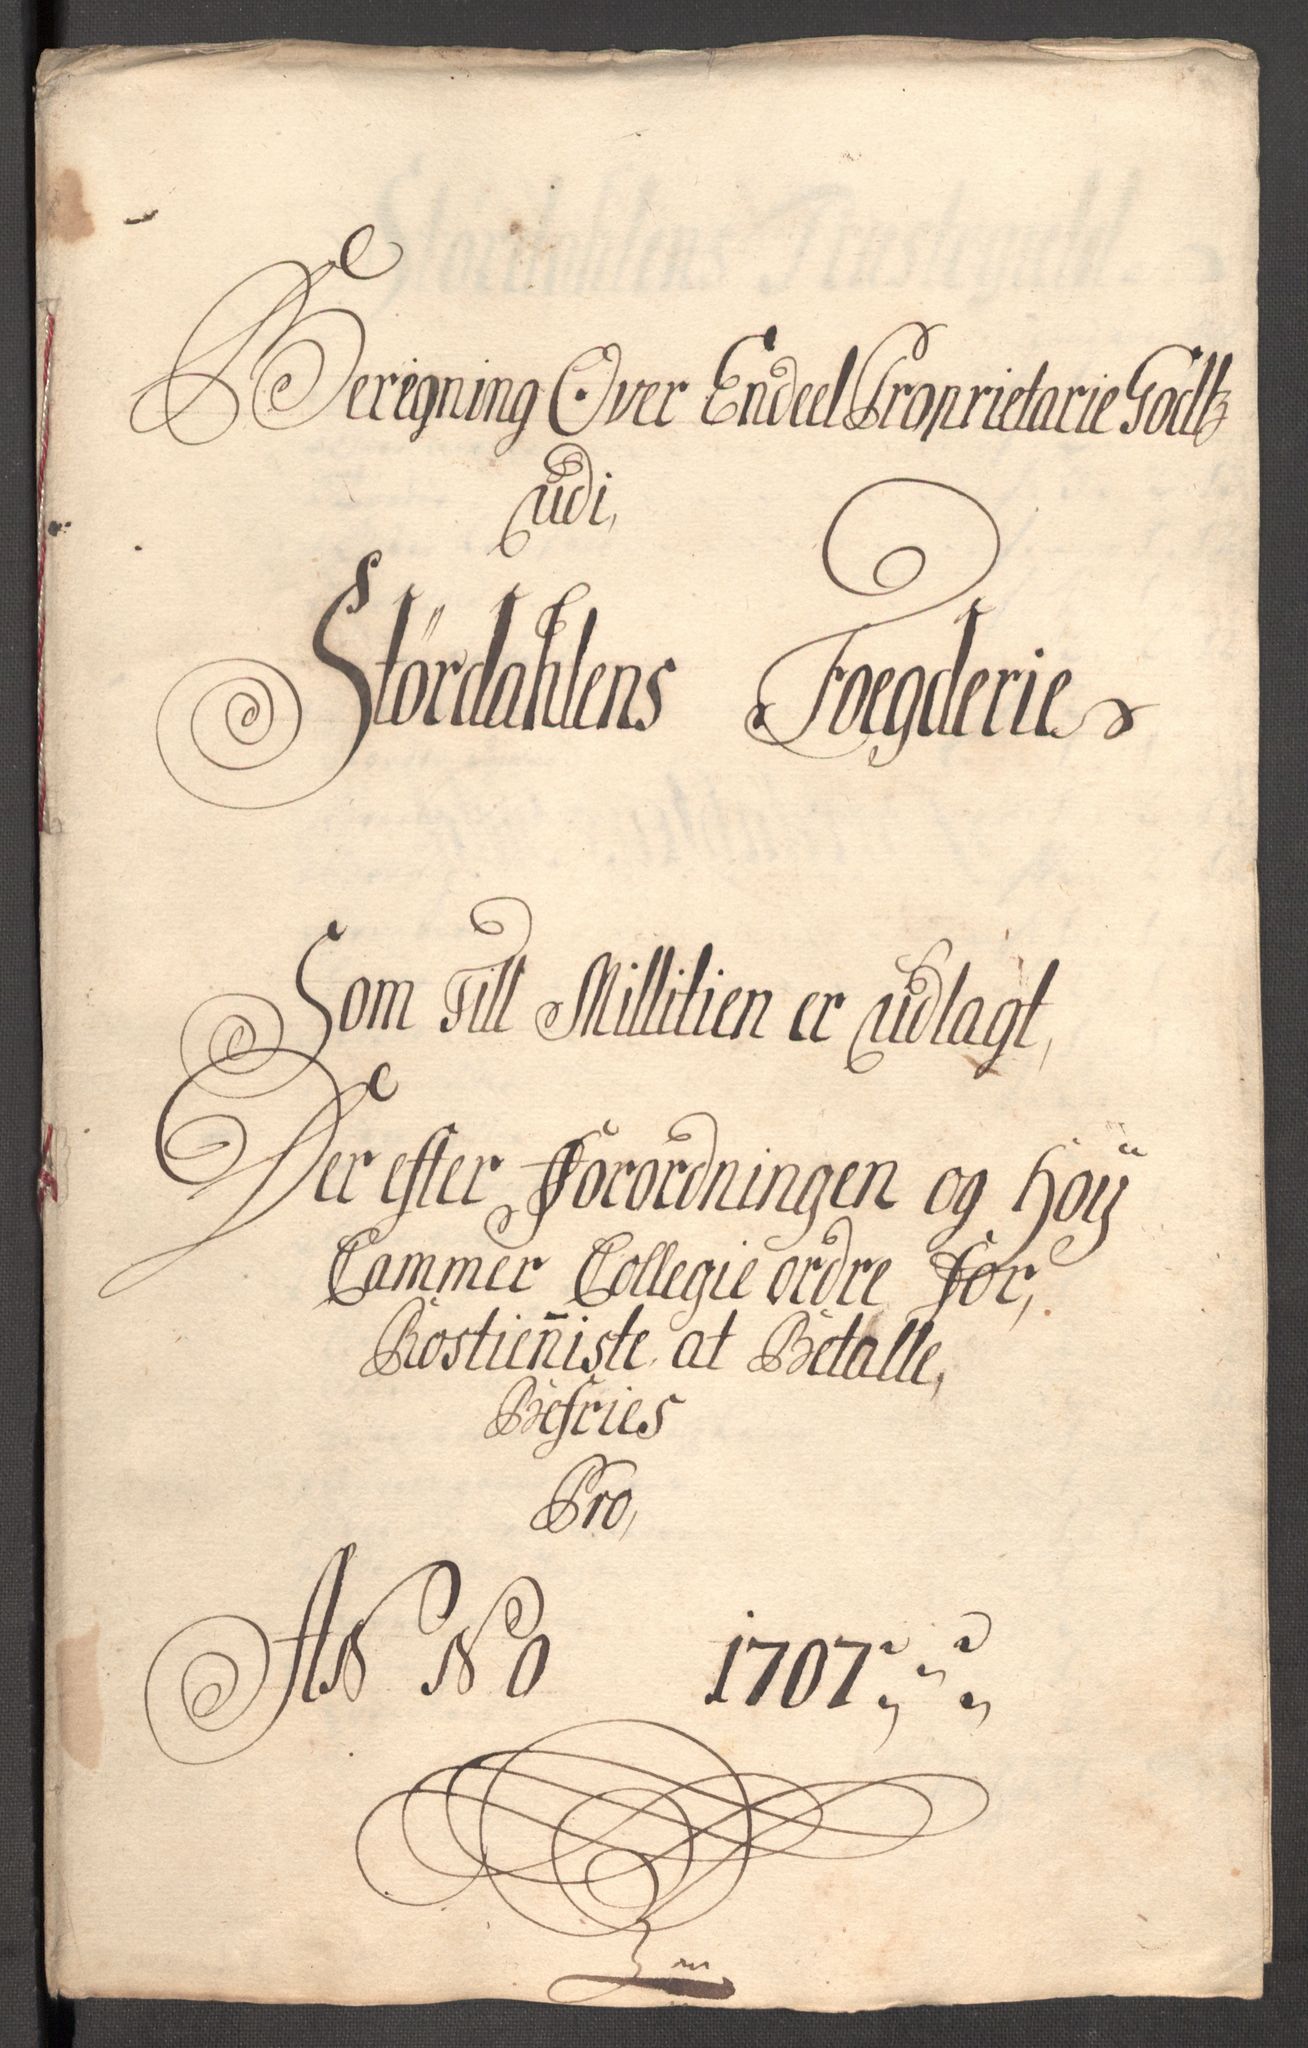 Beregning Over Endeel Proprietarie Godtz
udi,
Stördahlens Foegderie
Som Till Millitien er udlagt,
Der efter fforordningen og höÿ
Cammer Collegie ordre for,
Rostien̄iste at Betalle,
Befries
Pro,
AN NO 1707